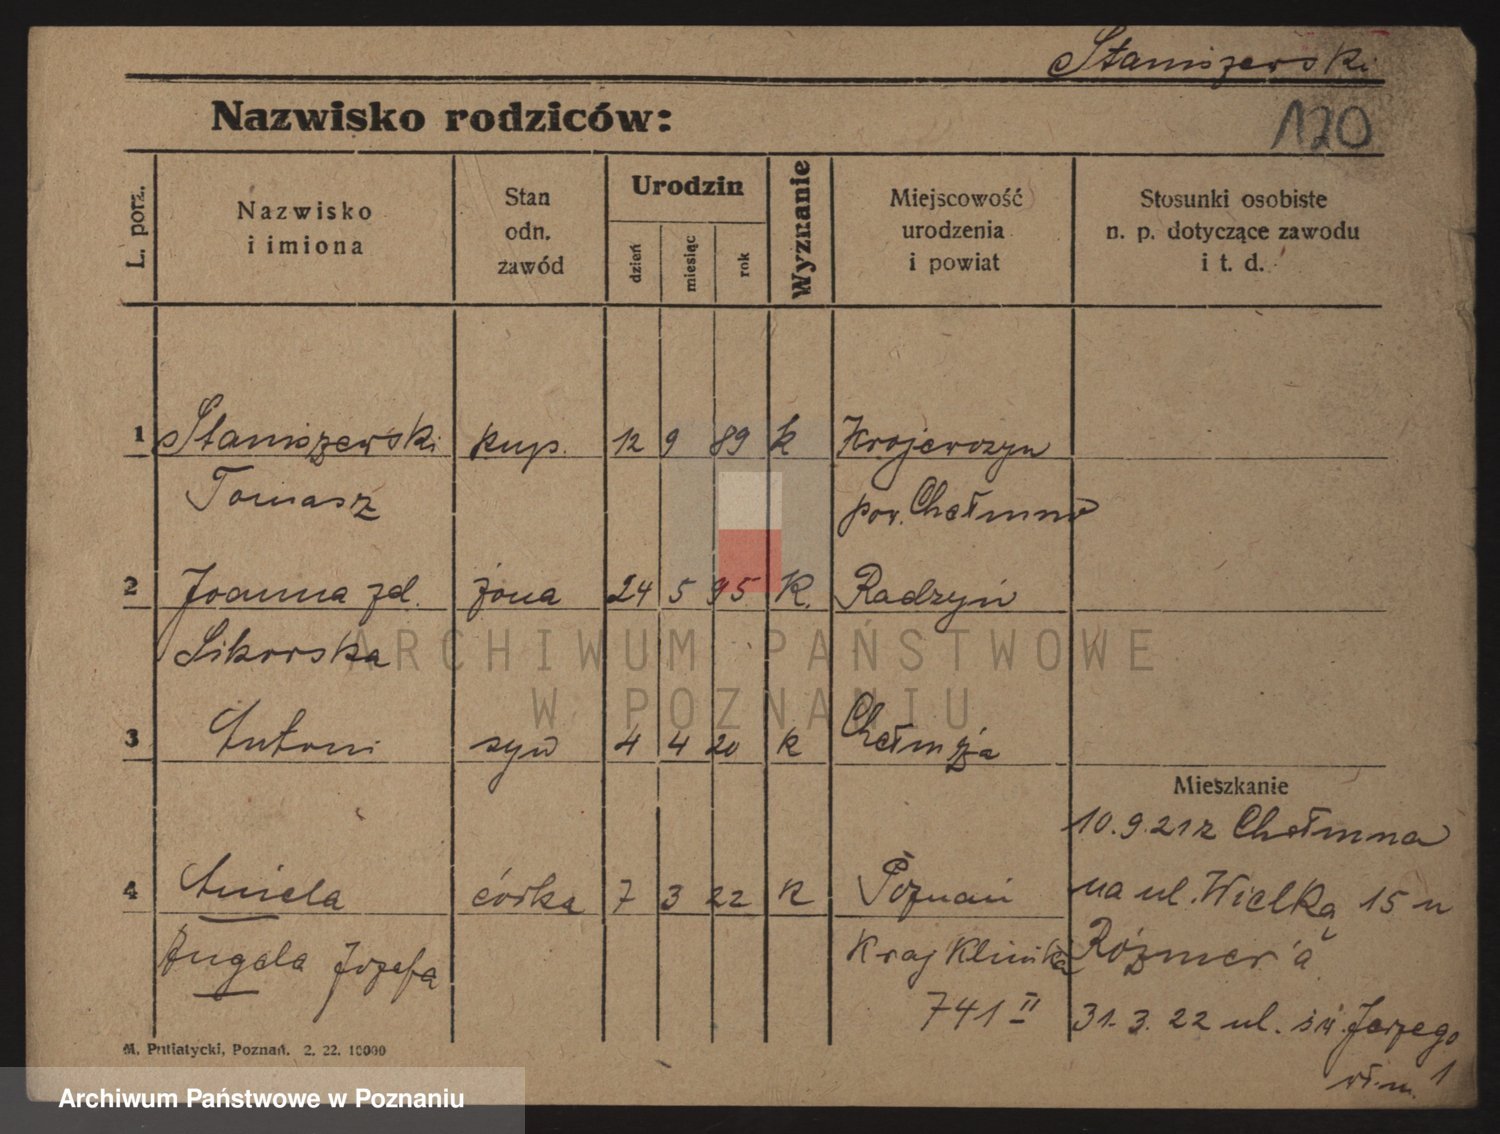 Staniszewski
Nazwisko rodziców:
120
L. porz.
Nazwisko
i imiona
Stan
odn.
zawód
Urodzin
dzień
miesiąc
rok
Wyznanie
Miejscowość
urodzenia
i powiat
Stosunki osobiste
n. p. dotyczące zawodu
i t. d.
1 Staniszewski kup. 12 9 89 k
Tomasz pow. Chełmno
2 Joanna zd. żona 24 5 95 k. Radzyń
Sikorska
ARCHIWUM PAŃSTWOWE
W POZNANIU
3 Antoni syn 4 4 20 k Chełmża
Mieszkanie
10.9.21 z Chełmna
4 Aniela córka 7 3 22 k Poznań na ul. Wielką 15 u
Angela Józefa Kraj Klinika
741 II 31.3.22 ul. św. Jerzego 1
M. Putiatycki, Poznań. 2. 22. 10000
Archiwum Państwowe w Poznaniu